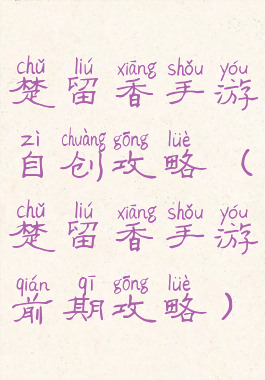 chǔ liú xiāng shǒu yóu
楚留香手游
zì chuàng gōng lüè
自创攻略（
chǔ liú xiāng shǒu yóu
楚留香手游
qián qī gōng lüè
前期攻略）